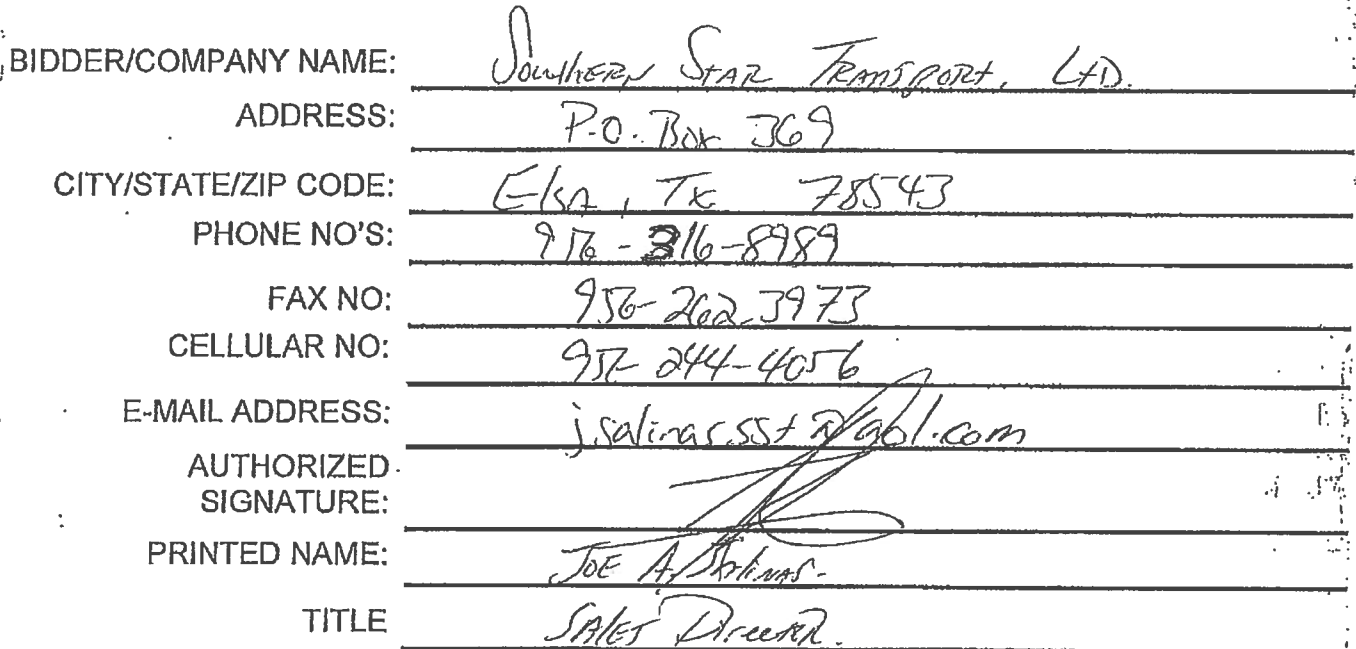 BIDDER/COMPANY NAME: Southern Star Transport, Ltd.
ADDRESS: P.O. Box 369
CITY/STATE/ZIP CODE: Elsa, TX 78543
PHONE NO'S: 956-316-8989
FAX NO: 956-262-3973
CELLULAR NO: 956-244-4056
E-MAIL ADDRESS: j.salinas.sst@aol.com
AUTHORIZED
SIGNATURE:
PRINTED NAME: JOE A. Salinas.
TITLE SALES Director.